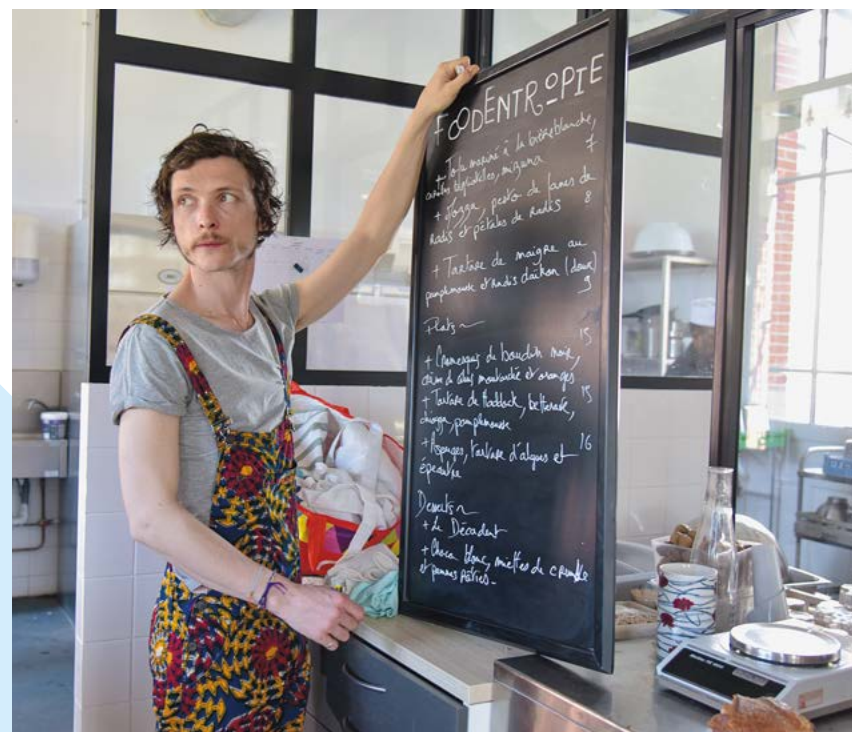 FOODENTROPIE
+ Tofu mariné à la bière blanche,
carottes, mizuna 7
+ pesto de fanes de
radis et pétales de radis 8
+ Tartare de maigre au
pamplemousse et radis daïkon (doux)
9
Plats ~
15
+ Cromesquis de boudin noir,
moutardée et oranges
+ Tartare de Haddock, betterave, 15
chioggia, pamplemousse
+ Asperges, tartare d'algues et 16
épeautre
Desserts ~
+ Le Décadent
+ Choco blanc, miettes de crumble
et pommes rôties -